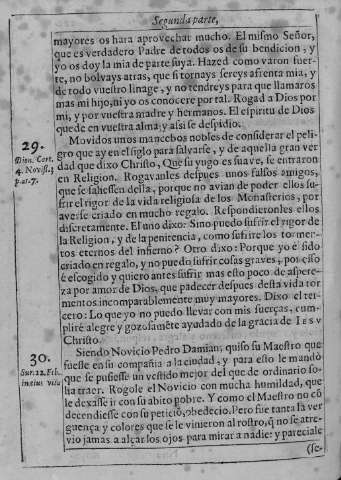 Segunda parte,
mayores os hara aprovechar mucho. El mismo Señor,
que es verdadero Padre de todos os de su bendicion, y
yo os doy la mia de parte suya. Hazed como varon fuer-
te, no bolvays atras, que si tornays sereys afrenta mia, y
de todo vuestro linage, y no tendreys para que llamaros
mas mi hijo, ni yo os conocere por tal. Rogad a Dios por
mi, y por vuestra madre y hermanos. El espiritu de Dios
quede en vuestra alma: y assi se despidio.
29.
Dion. Cart.
4. Noviss.
p. ar. 7.
Movidos unos mancebos nobles de considerar el peli-
gro que ay en el siglo para salvarse, y de aquella gran ver
dad que dixo Christo, Que su yugo es suave, se entraron
en Religion. Rogavanles despues unos falsos amigos,
que se saliessen della, porque no avian de poder ellos su-
frir el rigor de la vida religiosa de los Monasterios, por
averse criado en mucho regalo. Respondieronles ellos
discretamente. El uno dixo: Sino puedo sufrir el rigor de
la Religion, y de la penitencia, como sufrire los tormen-
tos eternos del infierno? Otro dixo: Porque yo é sido
criado en regalo, y no puedo sufrir cosas graves, por esso
é escogido y quiero antes sufrir mas esto poco de aspere-
za por amor de Dios, que padecer despues desta vida tor
mentos incomparablemente muy mayores. Dixo el ter-
cero: Lo que yo no puedo llevar con mis fuerças, cum-
pliré alegre y gozosamẽte ayudado de la gracia de IESV
Christo.
30.
Sur. 22. Feb.
in eius vita
Siendo Novicio Pedro Damian, quiso su Maestro que
fuesse en su compañia a la ciudad, y para esto le mandò
que se pusiesse un vestido mejor del que de ordinario so-
lia traer. Rogole el Novicio con mucha humildad, que
le dexasse ir con su abito pobre. Y como el Maestro no cõ
decendiesse con su peticiõ, obedecio. Pero fue tanta la ver
guença y colores que se le vinieron al rostro, q̃ no se atre-
vio jamas a alçar los ojos para mirar a nadie: y pareciale
(se-